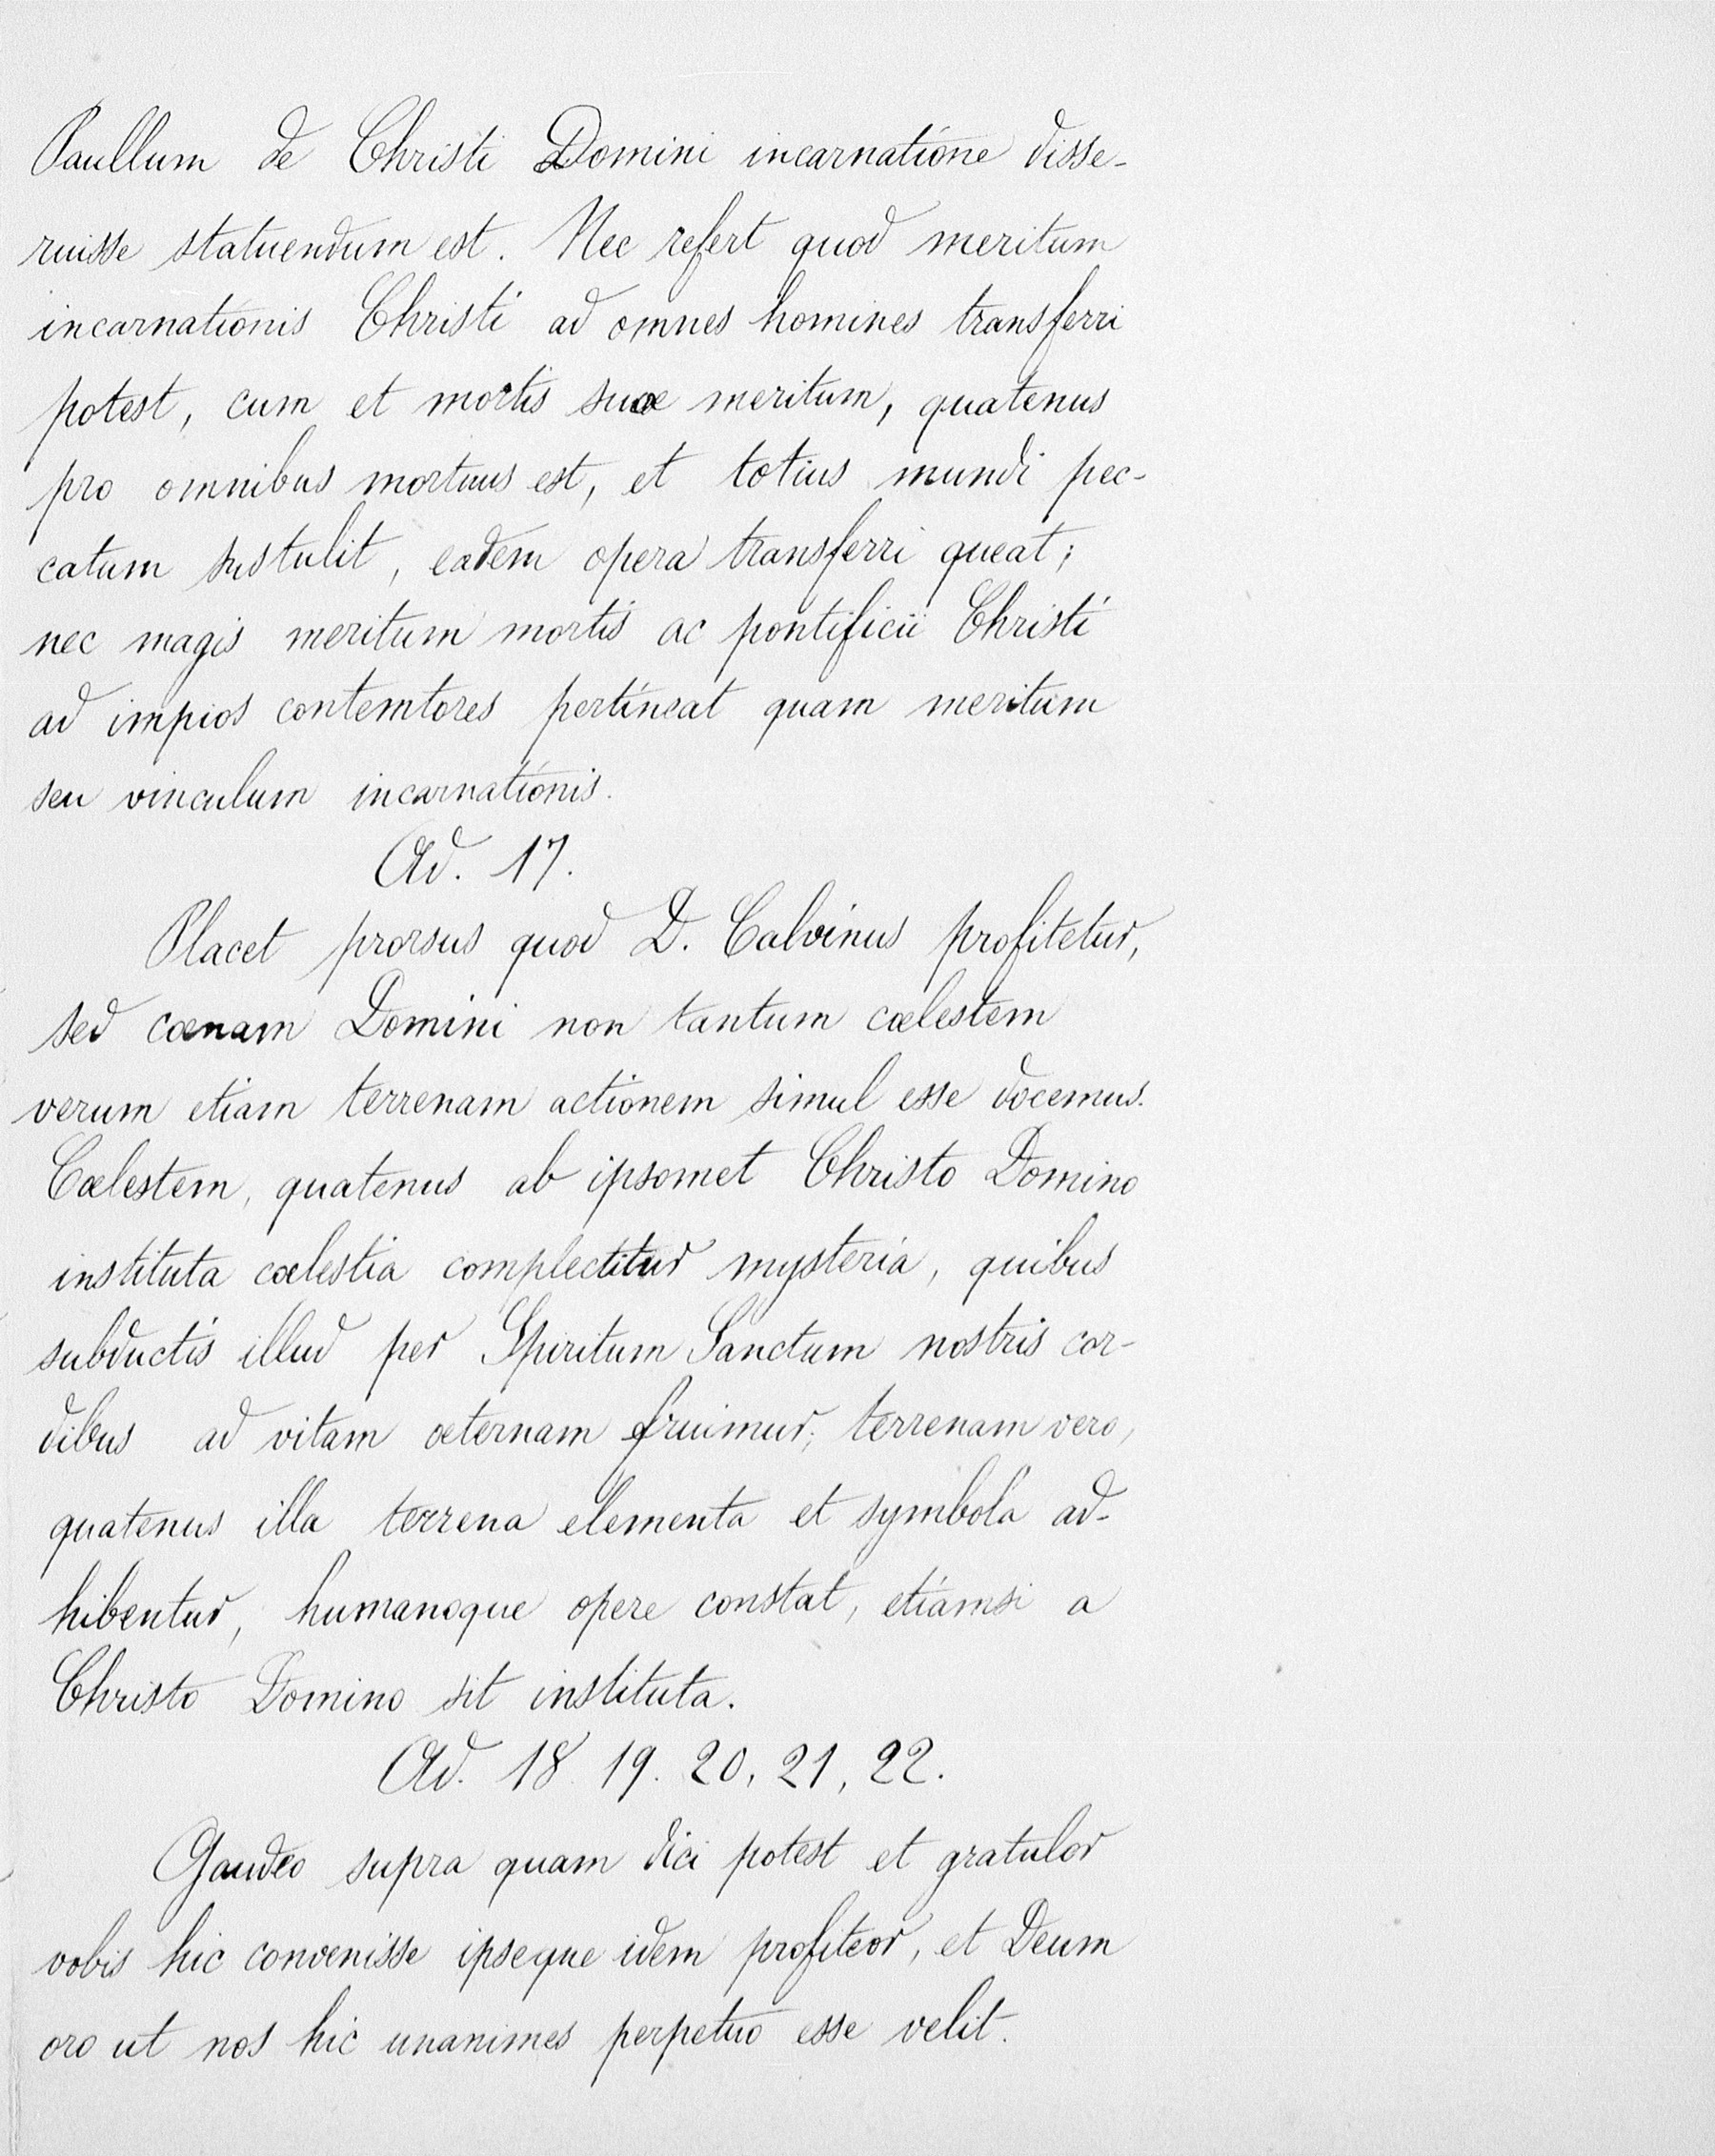 Paullum de Christi Domini incarnatione disse-
ruisse statuendum est. Nec refert quod meritum
incarnationis Christi ad omnes homines transferri
potest, cum et mortis suæ meritum, quatenus
pro omnibus mortuus est, et totius mundi pec-
catum sustulit, eadem opera transferri queat;
nec magis meritum mortis ac pontificii Christi
ad impios contemtores pertineat quam meritum
seu vinculum incarnationis.
Ad. 17.
Placet prorsus quod D. Calvinus profitetur,
sed cœnam Domini non tantum cœlestem
verum etiam terrenam actionem simul esse docemus.
Cœlestem, quatenus ab ipsomet Christo Domino
instituta cœlestia complectitur mysteria, quibus
subductis illud per Spiritum Sanctum nostris cor-
dibus ad vitam æternam fruimur; terrenam vero,
quatenus illa terrena elementa et symbola ad-
hibentur, humanoque opere constat, etiamsi a
Christo Domino sit instituta.
Ad. 18 19. 20, 21, 22.
Gaudeo supra quam dici potest et gratulor
vobis hic convenisse ipseque idem profiteor, et Deum
oro ut nos hic unanimes perpetuo esse velit.